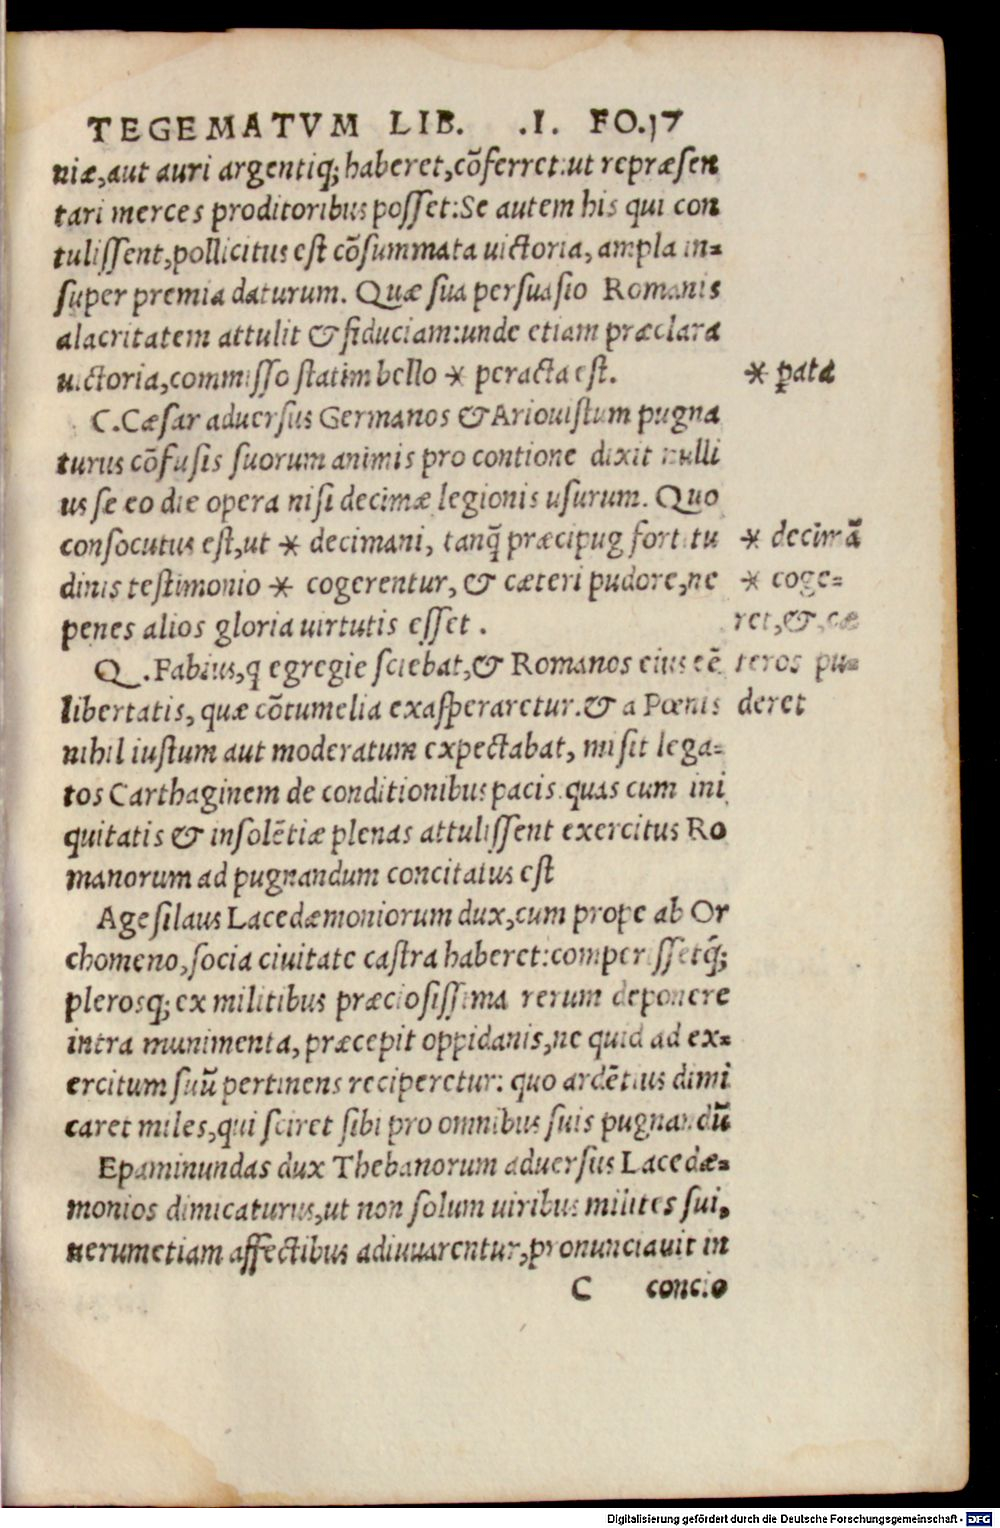 TEGEMATVM LIB. .I. FO.17
niæ,aut auri argentiq; haberet,cõferret:ut repræsen
tari merces proditoribus posset:Se autem his qui con
tulissent,pollicitus est cõsummata uictoria, ampla in=
super premia daturum. Quæ sua persuasio Romanis
alacritatem attulit & fiduciam:unde etiam præclara
uictoria,commisso statim bello * peracta est.
* pata
C.Cæsar aduersus Germanos & Ariouistum pugna
turus cõfusis suorum animis pro contione dixit nulli
us se eo die opera nisi decimæ legionis usurum. Quo
consocutus est,ut * decimani, tanq̃ præcipuę fortitu
* decimã
dinis testimonio * cogerentur, & cæteri pudore,ne
* coge=
penes alios gloria uirtutis esset .
ret,& cæ
Q.Fabius,q egregie sciebat,& Romanos eius eẽ
teros pu=
libertatis, quæ cõtumelia exasperaretur.& a Pœnis
deret
nihil iustum aut moderatum expectabat, misit lega=
tos Carthaginem de conditionibus pacis.quas cum ini
quitatis & insolẽtiæ plenas attulissent exercitus Ro
manorum ad pugnandum concitatus est
Agesilaus Lacedæmoniorum dux,cum prope ab Or
chomeno,socia ciuitate castra haberet:comperissetq́;
plerosq; ex militibus præciosissima rerum deponere
intra munimenta, præcepit oppidanis,ne quid ad ex=
ercitum suũ pertinens reciperetur: quo ardẽtius dimi
caret miles,qui sciret sibi pro omnibus suis pugnandũ
Epaminundas dux Thebanorum aduersus Lacedæ=
monios dimicaturus,ut non solum uiribus milites sui,
uerumetiam affectibus adiuuarentur,pronunciauit in
C concio
Digitalisierung gefördert durch die Deutsche Forschungsgemeinschaft - DFG